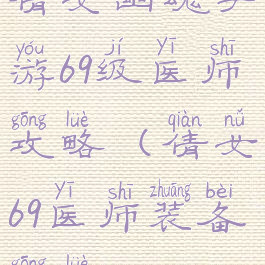 倩女幽魂手
yóu jí yī shī
游69级医师
gōng lüè qiàn nǚ
攻略（倩女
yī shī zhuāng bèi
69医师装备
gōng lüè